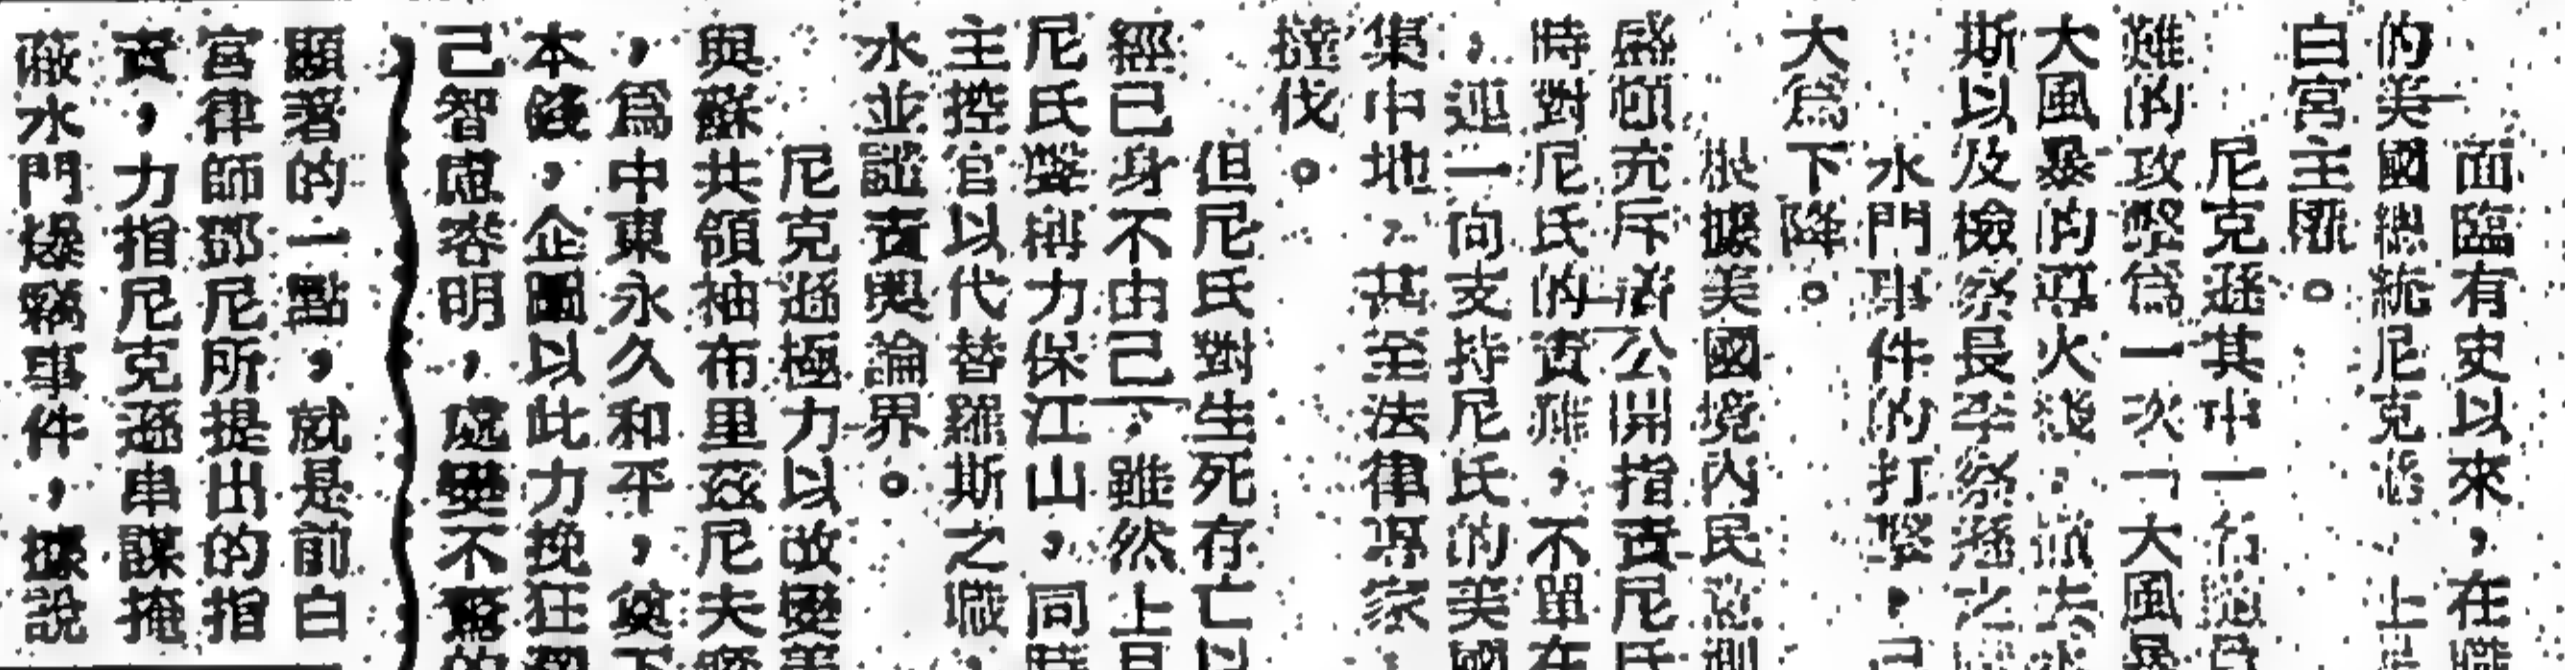 面臨有史以來，在職
的美國總統尼克遜 上
白宮主
尼克遜其中一
難的攻擊為一次「大風暴
大風暴的導火綫，
斯以及檢察長李察遜之
水門事件的打擊，已
大為下降。
根據美國境內民意測
盛頓充斥 公開指責尼氏
時對尼氏的責難，不單在
，這一向支持尼氏的美國
集中地，甚至法律專家
撻伐。
但尼氏對生死存亡以
經已身不由己，雖然上月
尼氏聲稱力保江山，同時
主控官以代替羅斯之職，
水並譴責輿論界。
尼克遜極力以故
與蘇共領袖布里茲尼夫
，為中東永久和平，
本錢，企圖以此力挽狂瀾
己智慮 明，處變不驚的
顯著的一點，就是前白
宮律師鄧尼所提出的指
責，力指尼克遜串謀掩
蔽水門爆竊事件，據說